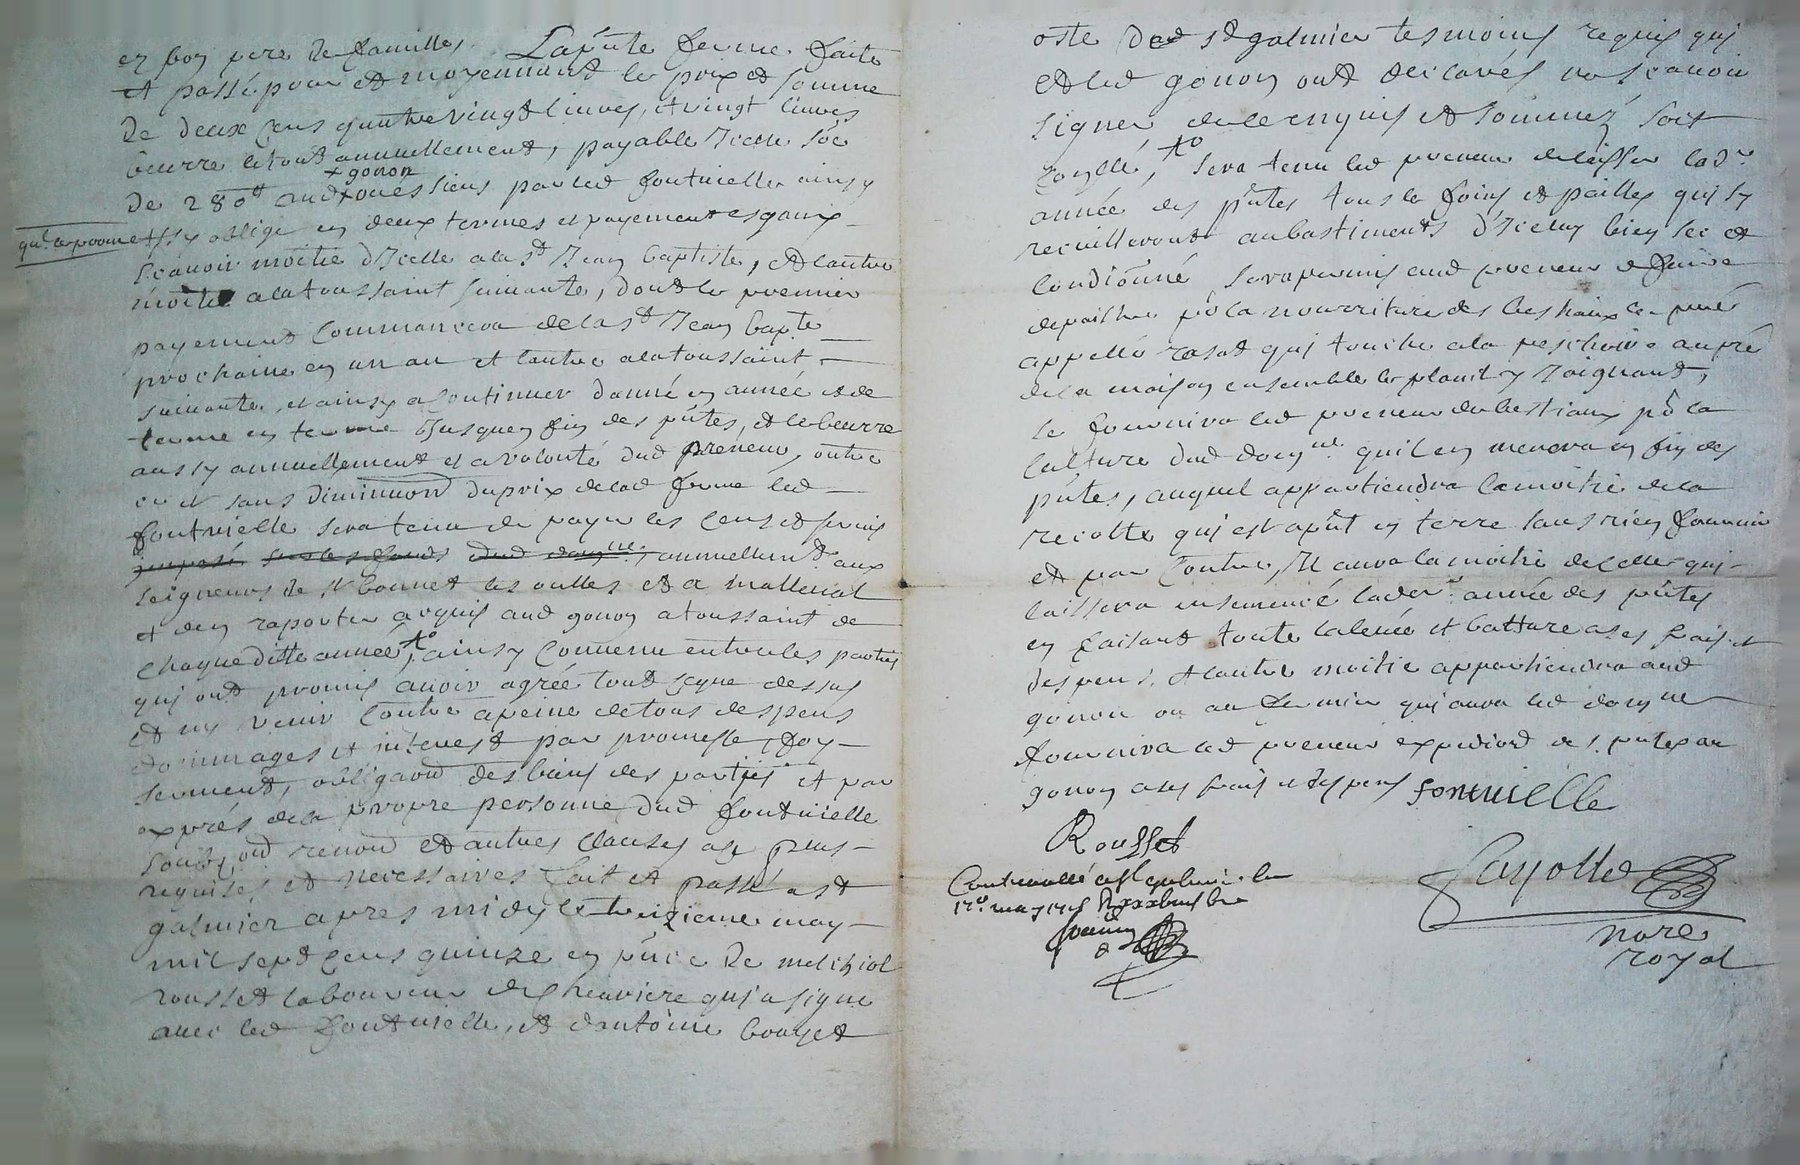 en bon pere de familles. La pnte ferme faite
et passé pour et moyennant le prix et somme
de deux cens quatrevingt livres, et vingt livres
beurre le tout annuellement, payable icelle soe
+ gonon
de 280lt aud ou es siens par led fontvielle ainsy
qu'il le promet et s'y oblige en deux termes et payement esgaux
scavoir moitié d'icelle a la St Jean baptiste, et l'autre
moitié a la toussaint suivante, dont le premier
payement commancera de la St Jean bapte
prochaine en un an et l'autre a la toussaint
suivante, et ainsy a continuer d'anné en année et de
terme en terme jusquen fin des pntes, et le beurre
aussy annuellement et a volonté dud preneur, outre
ce et sans diminuon du prix de lad ferme led
fontvielle sera tenu de payer les cens et servis
imposé sur les fonds dud domne, annuellemt aux
seigneurs de St bonnet les oulles et a malleval
et d'en raporter acquis aud gonon a toussaint de
chaque ditte année, + ainsy convenu entre les parties
qui ont promis avoir agréé tout ce que dessus
et ny venir contre a peine de tous despens
dommages et interest par promesse, foy
serment, obligaon des biens des parties et par
exprés de la propre personne dud fontvielle
soubzon renon et autres clauses a ce plus
requises et necessaires fait et passé a st
galmier apres midy le treizieme may
mil sept cens quinze en pnce de melchiol
rousset laboureur de cheuriere qui a signé
avec led fontvielle, et d'antoine bouyet
oste dud st galmier tesmoins requis qui
et led gonon ont declarés ne scavoir
signer de ce enquis et sommez soit
conllé, + sera tenu led preneur de laisser la der
année des pntes tous les foins et pailles qui sy
recuilleront au bastiments d'iceluy bien sec et
condionné, sera permis aud preneur de faire
depaistre po la nourriture des bestiaux le pré
appellé rasat qui touche a la peschoire aupré
de la maison ensemble le plantey joignant,
le fournira led preneur de bestiaux po la
culture dud domne qu'il en menera en fin des
pntes, auquel appartiendra la moitié de la
recolte qui est apnt en terre sans rien fournir
et par contre, Il aura la moitié de celle qui
laissera ensemencé la der année des pntes
en faisant toute la levée et batture a ses frais et
despens, et l'autre moitié appartiendra aud
gonon ou au fermier qui aura led domne
fournira led preneur expedion des pntes au
gonon a ses frais et despens fontvielle
Rousset
Controllé a St galmier le
17e may 1715 R xxx
Fayolle
nore
royal